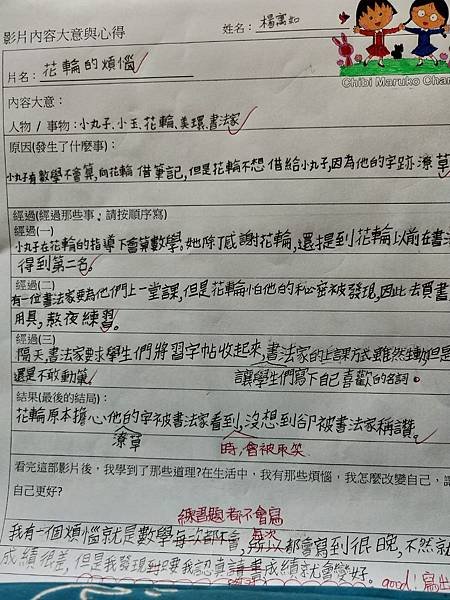 影片內容大意與心得
姓名:楊寓如
Chibi Maruko Chan
片名:花輪的煩惱
內容大意:
人物 / 事物:小丸子、小玉、花輪、美環、書法家
原因(發生了什麼事):
小丸子有數學不會算,向花輪借筆記,但是花輪不想借給小丸子,因為他的字跡潦草
經過(經過那些事,請按順序寫)
經過(一)
小丸子在花輪的指導下會算數學,她除了感謝花輪,還提到花輪以前在書法
得到第二名。
經過(二)
有一位書法家要為他們上一堂課,但是花輪怕他的秘密被發現,因此去買書
用具,熬夜練習。
經過(三)
隔天書法家要求學生們將習字帖收起來,書法家的上課方式雖然生動但是
還是不敢動筆。
讓學生們寫下自己喜歡的名詞。
結果(最後的結局):
花輪原本擔心他的字被書法家看到,沒想到卻被書法家稱讚。
潦草
時,會被取笑
看完這部影片後,我學到了那些道理?在生活中,我有那些煩惱,我怎麼改變自己,讓
自己更好?
練習題都不會寫
我有一個煩惱就是數學每次都不會,所以都會寫到很晚,不然就
每次
成績很差,但是我發現到只要我認真讀書成績就會變好。
good! 寫出